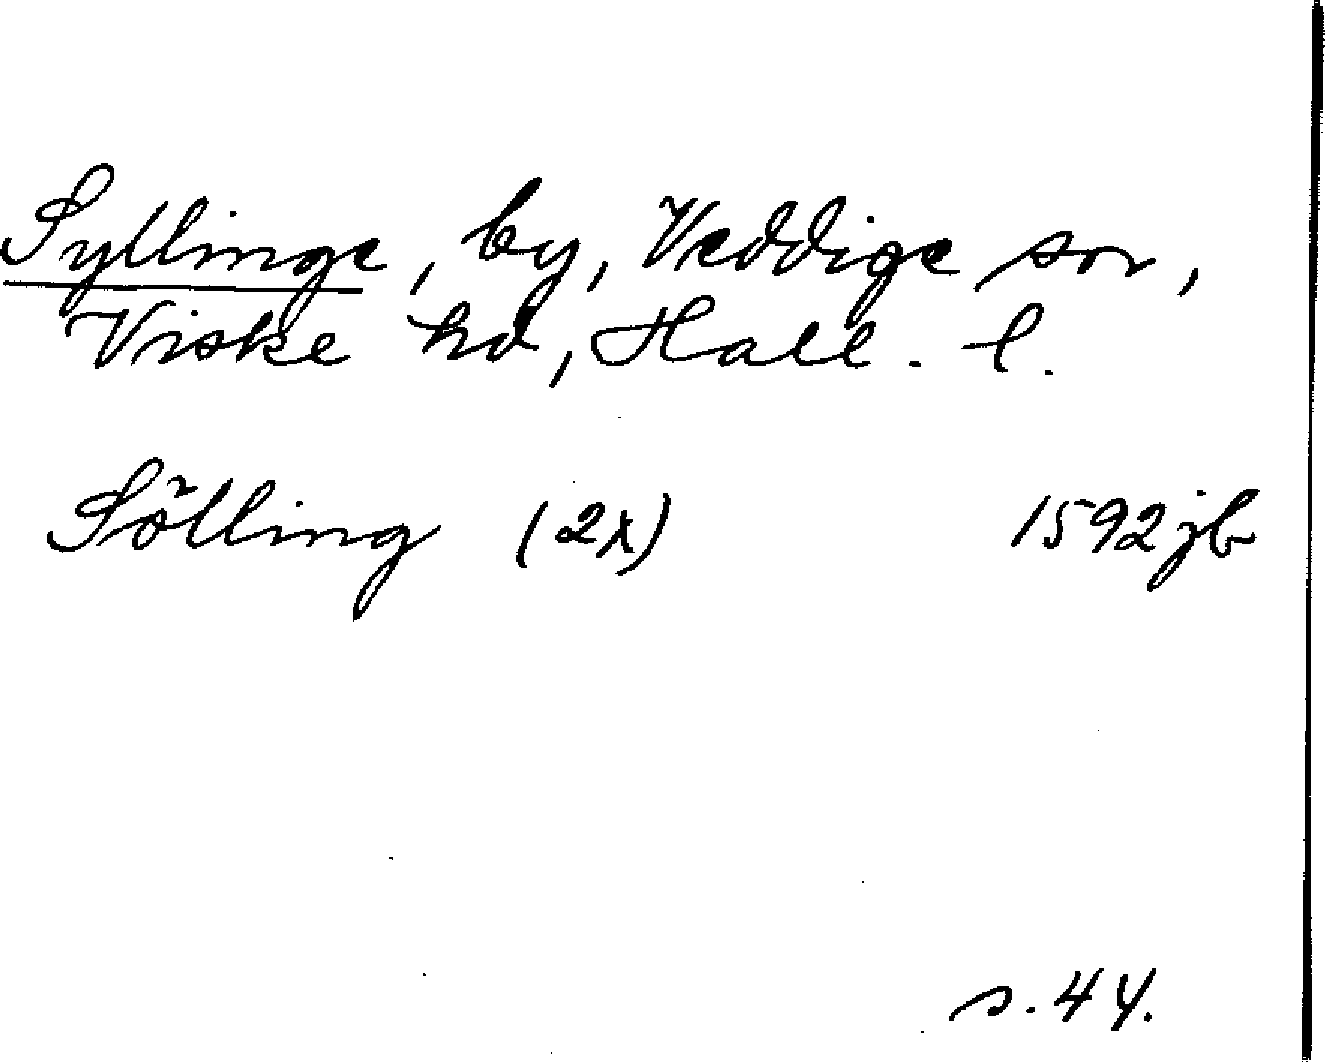 Syllinge, by, Veddige sn,
Viske hd, Hall. l.
Sölling (2x) 1592 jb
s. 44.